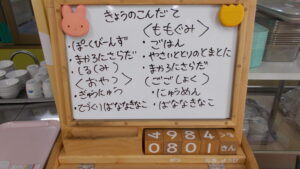 きょうのこんだて
・ぽーくびーんず
・まかろにさらだ
・しる(み)
<おやつ>
・ぎゅうにゅう
・てづくりばななきなこ
<ももぐみ>
・ごはん
・やさいととりのとまとに
・まかろにさらだ
<ごごしょく>
・にゅうめん
・ばななきなこ
4984
0801